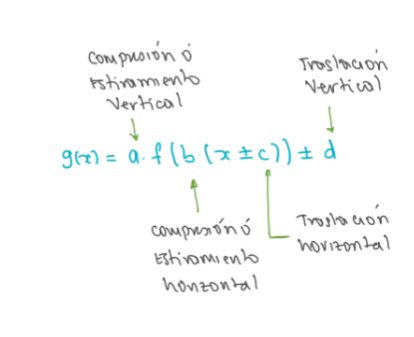 compresión ó
Estiramiento
Vertical
Traslación
Vertical
g(x) = a · f (b · (x ± c)) ± d
compresión ó
Estiramiento
horizontal
Traslación
horizontal